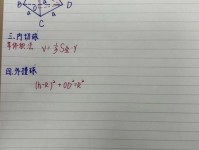 B D
C
三.内切球
等体积法 V=⅓S表·r
四.外接球
(h-R)²+OD²=R²